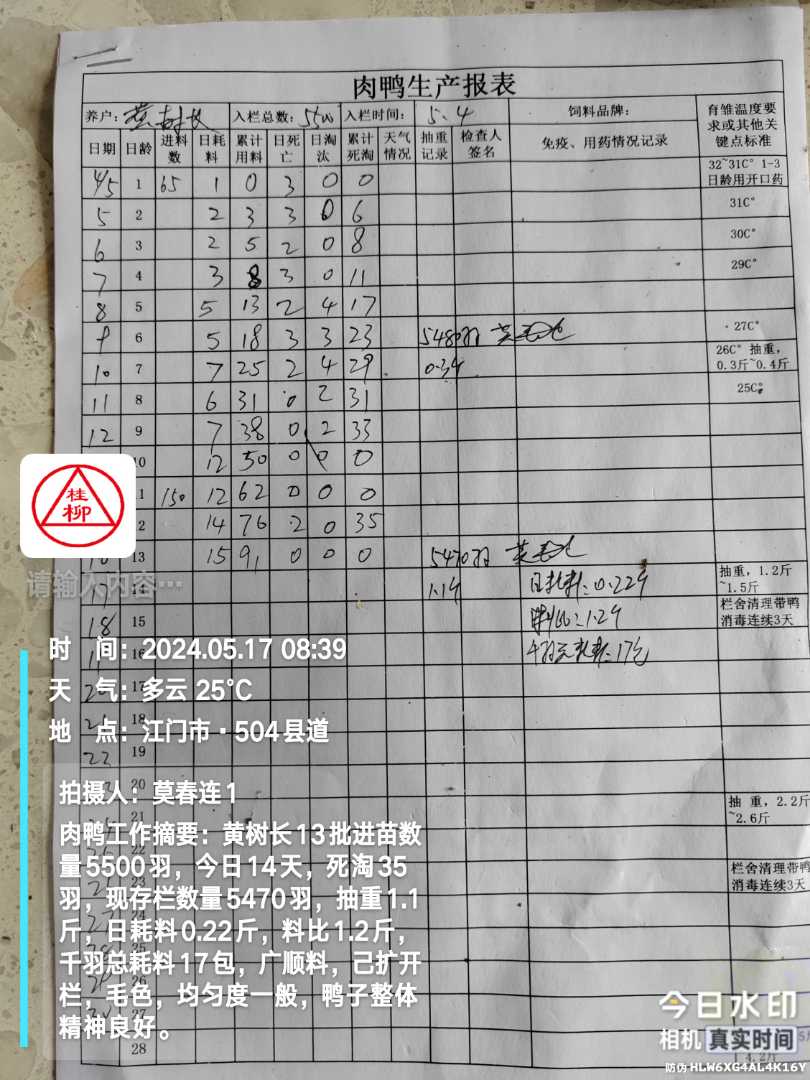 肉鸭生产报表
养户: 黄树长 入栏总数: 5500 入栏时间: 5.4 饲料品牌: 育雏温度要求或其他关键点标准
日期 日龄 进料数 日耗料 累计用料 日死亡 日淘汰 累计死淘 天气情况 抽重记录 检查人签名 免疫、用药情况记录
4/5 1 65 1 0 3 0 0 32~31C° 1-3日龄用开口药
5 2 2 3 3 0 6 31C°
6 3 2 5 2 0 8 30C°
7 4 3 8 3 0 11 29C°
8 5 5 13 2 4 17
9 6 5 18 3 3 23 5480羽 27C°
10 7 7 25 2 4 29 0.34 26C° 抽重,0.3斤~0.4斤
11 8 6 31 0 2 31 25C°
12 9 7 38 0 2 33
10 12 50 0 0 0
1 150 12 62 0 0 0
2 14 76 2 0 35
13 15 91 0 0 0 5470羽
14 1.1斤 日耗料:0.22斤 抽重,1.2斤~1.5斤
18 15 料比:1.2斤 栏舍清理带鸭消毒连续3天
16 千羽总耗料:17包
17
21 18
22 19
20
抽重,2.2斤~2.6斤
22
23 栏舍清理带鸭消毒连续3天
24
25
26
27
28
桂柳
请输入内容…
时 间: 2024.05.17 08:39
天 气: 多云 25℃
地 点: 江门市·504县道
拍摄人: 莫春连1
肉鸭工作摘要: 黄树长13批进苗数
量5500羽，今日14天，死淘35
羽，现存栏数量5470羽，抽重1.1
斤，日耗料0.22斤，料比1.2斤，
千羽总耗料17包，广顺料，己扩开
栏，毛色，均匀度一般，鸭子整体
精神良好。
今日水印
相机 真实时间
防伪 HLW6XG4AL4K16Y